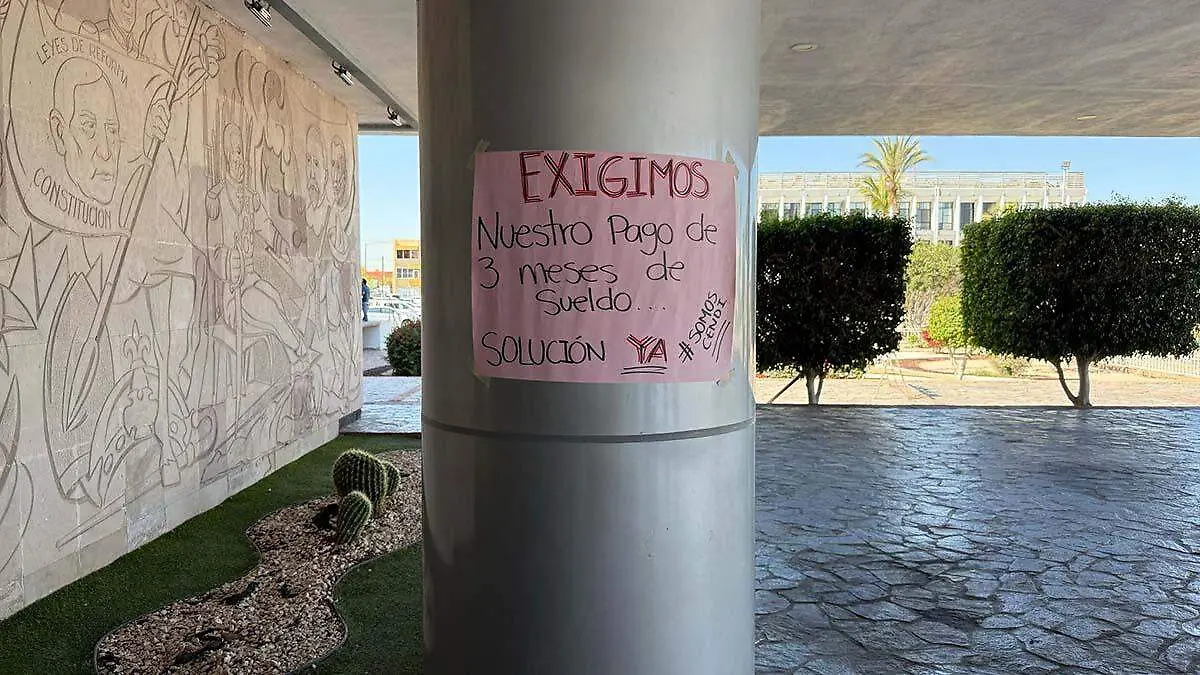 LEYES DE REFORMA
CONSTITUCION
EXIGIMOS
Nuestro Pago de
3 meses de
Sueldo...
SOLUCIÓN YA
#SOMOS
CENDI